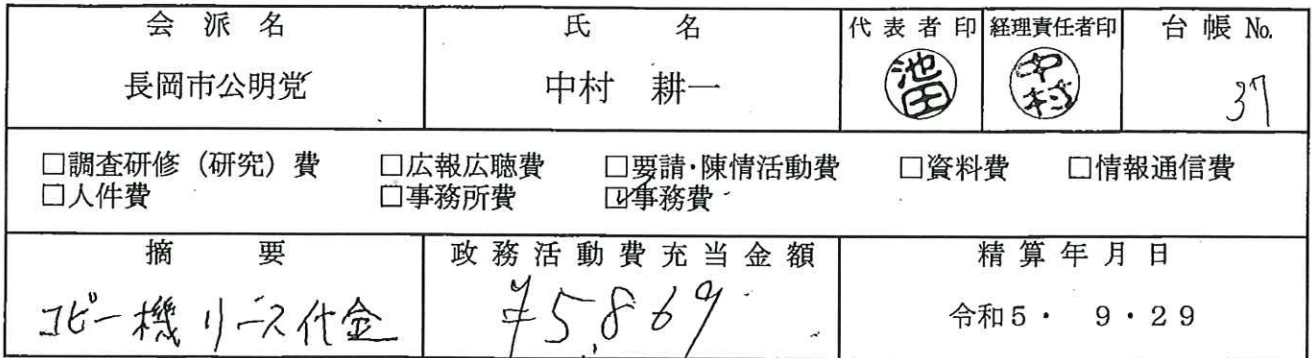 会派名 氏名 代表者印 経理責任者印 台帳No.
長岡市公明党 中村 耕一 池田 中村 37
□調査研修（研究）費 □広報広聴費 □要請・陳情活動費 □資料費 □情報通信費
□人件費 □事務所費 ☑事務費
摘要 政務活動費充当金額 精算年月日
コピー機リース代金 ¥5,869 令和5・ 9・29